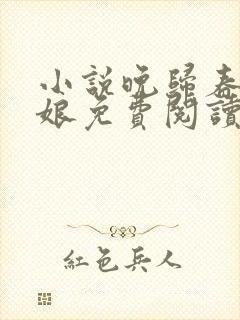 小說晚歸春
娘免費閱讀
紅色兵人